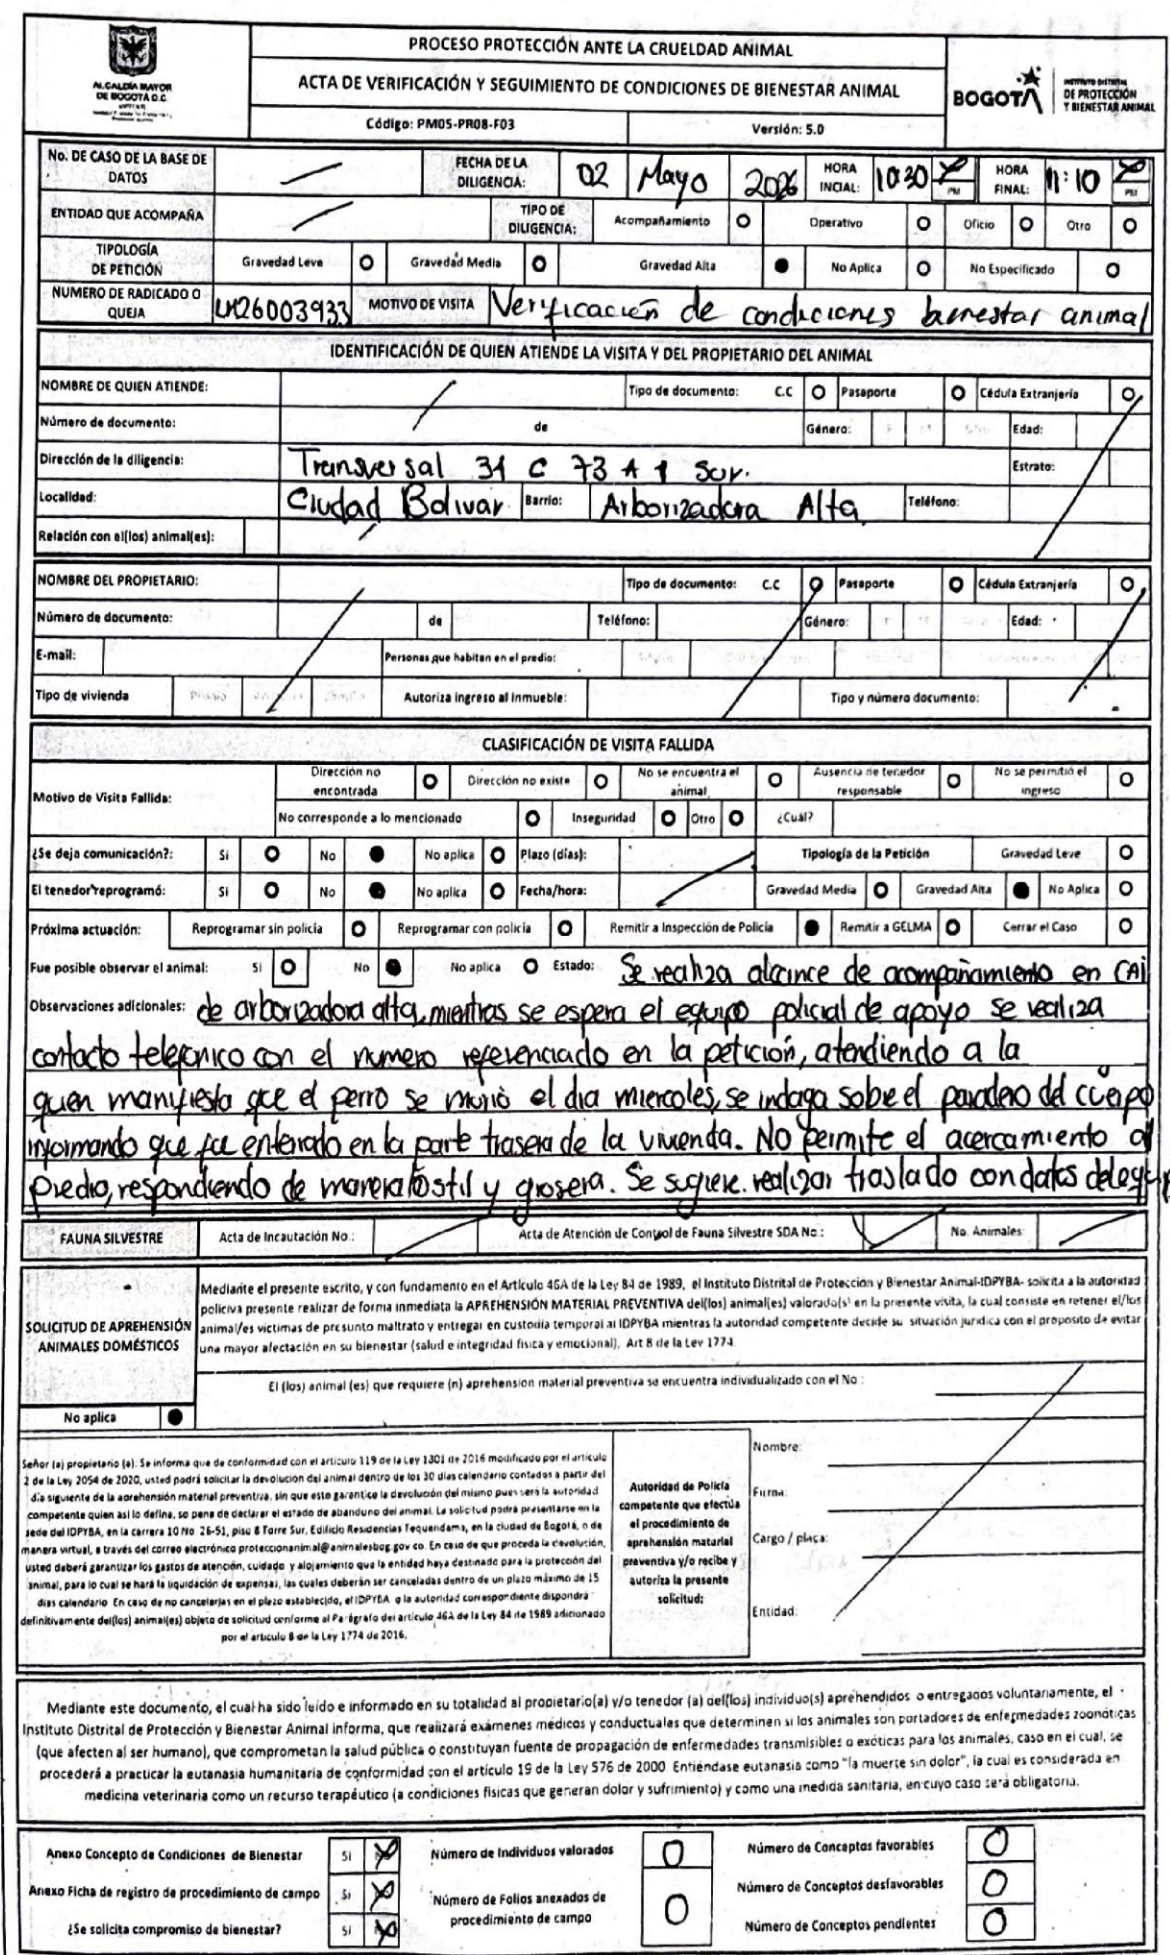 PROCESO PROTECCIÓN ANTE LA CRUELDAD ANIMAL
ALCALDÍA MAYOR
DE BOGOTÁ D.C.
ACTA DE VERIFICACIÓN Y SEGUIMIENTO DE CONDICIONES DE BIENESTAR ANIMAL
BOGOTÁ
INSTITUTO DISTRITAL
DE PROTECCIÓN
Y BIENESTAR ANIMAL
Código: PM05-PR08-F03 Versión: 5.0
No. DE CASO DE LA BASE DE DATOS FECHA DE LA DILIGENCIA: 02 Mayo 2026 HORA INCIAL: 10:30 PM HORA FINAL: 11:10 PM
ENTIDAD QUE ACOMPAÑA TIPO DE DILIGENCIA: Acompañamiento Operativo Oficio Otro
TIPOLOGÍA DE PETICIÓN Gravedad Leve Gravedad Media Gravedad Alta No Aplica No Especificado
NUMERO DE RADICADO O QUEJA LM26003933 MOTIVO DE VISITA Verificación de condiciones bienestar animal
IDENTIFICACIÓN DE QUIEN ATIENDE LA VISITA Y DEL PROPIETARIO DEL ANIMAL
NOMBRE DE QUIEN ATIENDE: Tipo de documento: C.C Pasaporte Cédula Extranjería
Número de documento: de Género: Edad:
Dirección de la diligencia: Transversal 31 C 73 A 1 Sur. Estrato:
Localidad: Ciudad Bolivar Barrio: Arborizadora Alta Teléfono:
Relación con el(los) animal(es):
NOMBRE DEL PROPIETARIO: Tipo de documento: C.C Pasaporte Cédula Extranjería
Número de documento: de Teléfono: Género: Edad:
E-mail: Personas que habitan en el predio:
Tipo de vivienda Autoriza ingreso al inmueble: Tipo y número documento:
CLASIFICACIÓN DE VISITA FALLIDA
Motivo de Visita Fallida: Dirección no encontrada Dirección no existe No se encuentra el animal Ausencia de tenedor responsable No se permitió el ingreso
No corresponde a lo mencionado Inseguridad Otro ¿Cuál?
¿Se deja comunicación?: Si No No aplica Plazo (días): Tipología de la Petición Gravedad Leve
El tenedor reprogramó: Si No No aplica Fecha/hora: Gravedad Media Gravedad Alta No Aplica
Próxima actuación: Reprogramar sin policía Reprogramar con policía Remitir a Inspección de Policía Remitir a GELMA Cerrar el Caso
Fue posible observar el animal: Si No No aplica Estado: Se realiza alcance de acompañamiento en CAI
Observaciones adicionales: de arborizadora alta, mientras se espera el equipo policial de apoyo se realiza
contacto telefonico con el numero referenciado en la petición, atendiendo a la
quien manifiesta que el perro se murió el dia miercoles, se indaga sobre el paradero del cuerpo
informando que fue enterrado en la parte trasera de la vivienda. No permite el acercamiento al
predio, respondiendo de manera hostil y grosera. Se sugiere realizar traslado con datos de
FAUNA SILVESTRE Acta de Incautación No.: Acta de Atención de Control de Fauna Silvestre SDA No.: No. Animales:
SOLICITUD DE APREHENSIÓN ANIMALES DOMÉSTICOS
Mediante el presente escrito, y con fundamento en el Artículo 46A de la Ley 84 de 1989, el Instituto Distrital de Protección y Bienestar Animal-IDPYBA- solicita a la autoridad
policiva presente realizar de forma inmediata la APREHENSIÓN MATERIAL PREVENTIVA del(los) animal(es) valorado(s) en la presente visita, la cual consiste en retener el/los
animal/es victimas de presunto maltrato y entregar en custodia temporal al IDPYBA mientras la autoridad competente decide su situación jurídica con el proposito de evitar
una mayor afectación en su bienestar (salud e integridad física y emocional), Art 8 de la Ley 1774
El (los) animal (es) que requiere (n) aprehension material preventiva se encuentra individualizado con el No :
No aplica
Señor (a) propietario (a): Se informa que de conformidad con el artículo 119 de la Ley 1801 de 2016 modificado por el artículo
2 de la Ley 2054 de 2020, usted podrá solicitar la devolución del animal dentro de los 30 días calendario contados a partir del
día siguiente de la aprehensión material preventiva, sin que esto garantice la devolución del mismo pues será la autoridad
competente quien asi lo defina, so pena de declarar el estado de abandono del animal. La solicitud podrá presentarse en la
sede del IDPYBA, en la carrera 10 No. 26-51, piso 8 Torre Sur, Edificio Residencias Tequendama, en la ciudad de Bogotá, o de
manera virtual, a través del correo electrónico proteccionanimal@animalesbog.gov.co. En caso de que proceda la devolución,
usted deberá garantizar los gastos de atención, cuidado y alojamiento que la entidad haya destinado para la protección del
animal, para lo cual se hará la liquidación de expensas, las cuales deberán ser canceladas dentro de un plazo máximo de 15
días calendario En caso de no cancelarlas en el plazo establecido, el IDPYBA o la autoridad correspondiente dispondrá
definitivamente del(los) animal(es) objeto de solicitud conforme al Parágrafo del artículo 46A de la Ley 84 de 1989 adicionado
por el articulo 8 de la Ley 1774 de 2016.
Autoridad de Policía
competente que efectúa
el procedimiento de
aprehensión material
preventiva y/o recibe y
autoriza la presente
solicitud:
Nombre:
Firma:
Cargo / placa:
Entidad:
Mediante este documento, el cual ha sido leído e informado en su totalidad al propietario(a) y/o tenedor (a) del(los) individuo(s) aprehendidos o entregados voluntariamente, el
Instituto Distrital de Protección y Bienestar Animal informa, que realizará exámenes médicos y conductuales que determinen si los animales son portadores de enfermedades zoonóticas
(que afecten al ser humano), que comprometan la salud pública o constituyan fuente de propagación de enfermedades transmisibles o exóticas para los animales, caso en el cual, se
procederá a practicar la eutanasia humanitaria de conformidad con el artículo 19 de la Ley 576 de 2000 Entiéndase eutanasia como "la muerte sin dolor", la cual es considerada en
medicina veterinaria como un recurso terapéutico (a condiciones físicas que generan dolor y sufrimiento) y como una medida sanitaria, en cuyo caso será obligatoria.
Anexo Concepto de Condiciones de Bienestar Si Número de Individuos valorados 0 Número de Conceptos favorables 0
Anexo Ficha de registro de procedimiento de campo Si Número de Folios anexados de procedimiento de campo 0 Número de Conceptos desfavorables 0
¿Se solicita compromiso de bienestar? Si Número de Conceptos pendientes 0